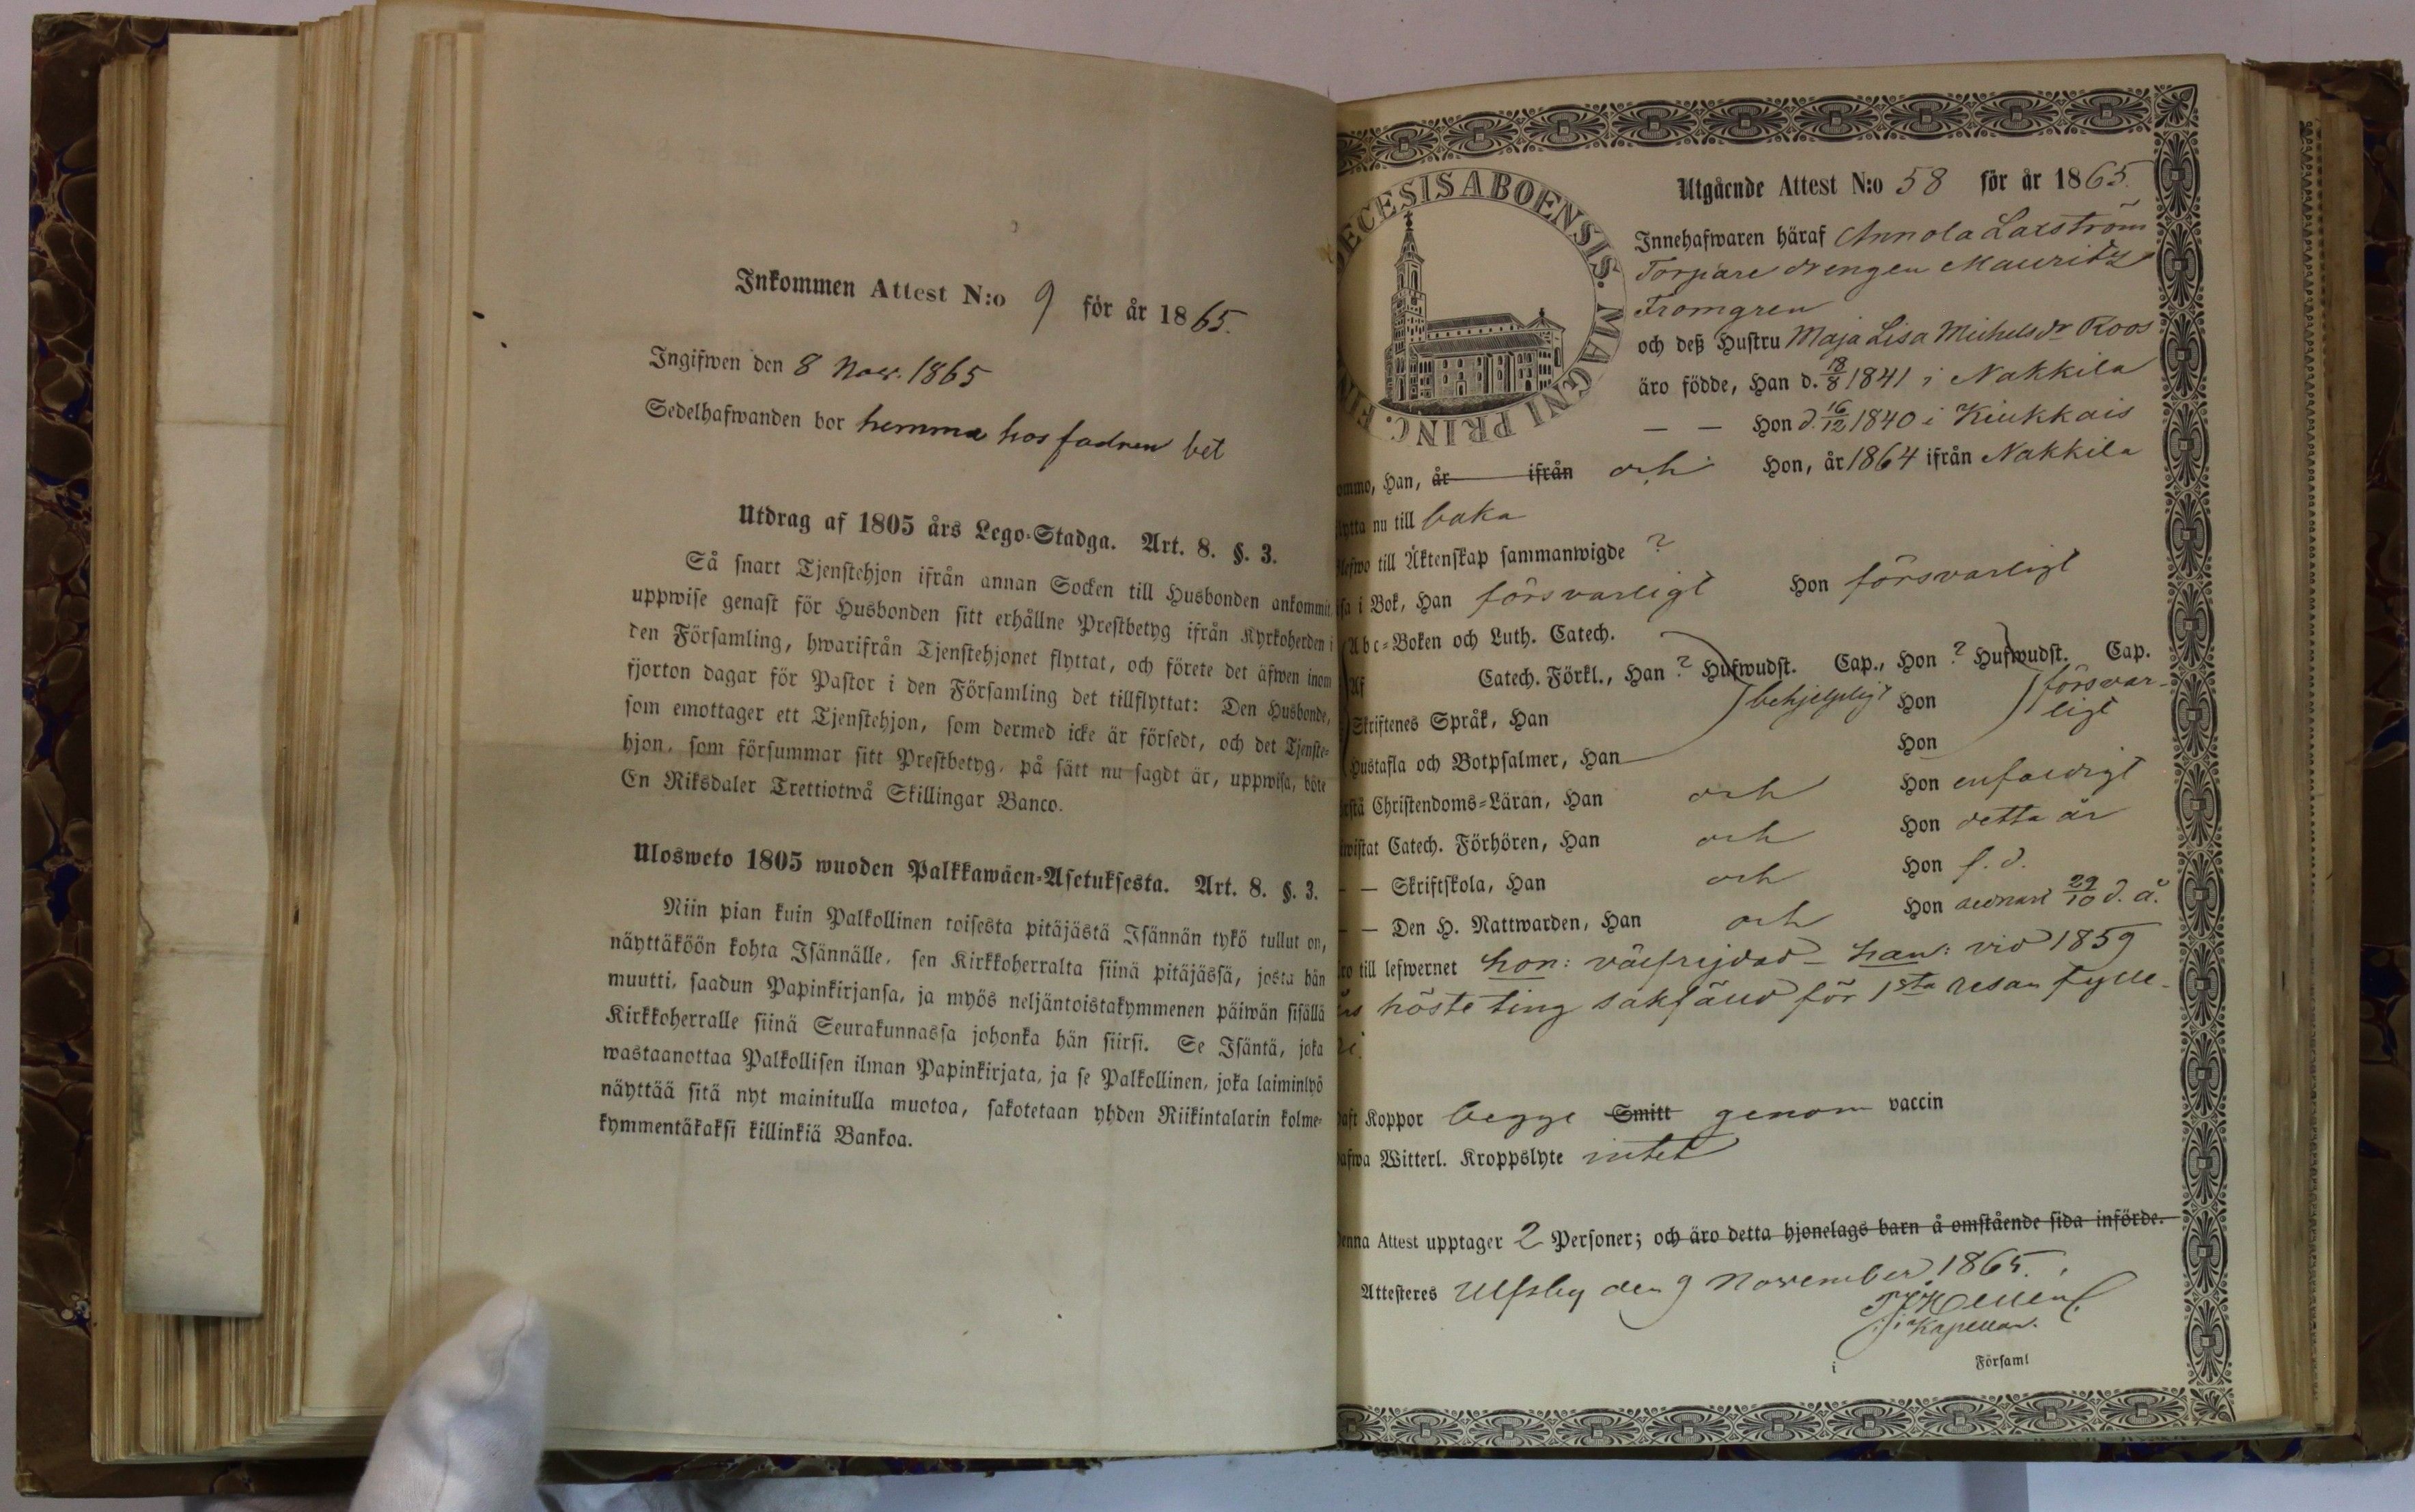 Inkommen Attest N:o 9 för år 1865.
Ingifwen den 8 Nov. 1865
Sedelhafwanden bor hemma hos fadren
Utdrag af 1805 års Lego-Stadga. Art. 8. §. 3.
Så snart Tjenstehjon ifrån annan Socken till Husbonden ankommit
uppwise genast för Husbonden sitt erhållne Prestbetyg ifrån Kyrkoherden i
den Församling, hwarifrån Tjenstehjonet flyttat, och förete det äfwen inom
fjorton dagar för Pastor i den Församling det tillflyttat: Den Husbonde,
som emottager ett Tjenstehjon, som dermed icke är försedt, och det Tjenste-
hjon, som försummar sitt Prestbetyg, på sätt nu sagdt är, uppwisa, böte
En Riksdaler Trettiotwå Skillingar Banco.
Ulosweto 1805 wuoden Palkkawäen-Asetuksesta. Art. 8. §. 3.
Niin pian kuin Palkollinen toisesta pitäjästä Isännän tykö tullut on,
näyttäköön kohta Isännälle, sen Kirkkoherralta siinä pitäjässä, josta hän
muutti, saadun Papinkirjansa, ja myös neljäntoistakymmenen päiwän sisällä
Kirkkoherralle siinä Seurakunnassa johonka hän siirsi. Se Isäntä, joka
wastaanottaa Palkollisen ilman Papinkirjata, ja se Palkollinen, joka laiminlyö
näyttää sitä nyt mainitulla muotoa, sakotetaan yhden Riikintalarin kolme-
kymmentäkaksi killinkiä Bankoa.
ECESIS ABOENSIS. MAGNI PRINC. FIN
Utgående Attest N:o 58 för år 1865.
Innehafwaren häraf Annola Laxström
Torpare drengen Mauritz
Fromgren
och deß Hustru Maja Lisa Michelsdr Roos
äro födde, Han d. 18/8 1841 i Nakkila
— — Hon d. 16/12 1840 i Kiukkais
ommo, Han, år ifrån och Hon, år 1864 ifrån Nakkila
lytta nu till baka
lefwo till Äktenskap sammanwigde ?
sa i Bok, Han försvarligt Hon försvarligt
Abc-Boken och Luth. Catech.
Af Catech. Förkl., Han ? Hufwudst. Cap., Hon ? Hufwudst. Cap.
Skriftenes Språk, Han behjelpligt Hon försvar-
ligt
Hustafla och Botpsalmer, Han Hon
rstå Christendoms-Läran, Han och Hon enfaldigt
wistat Catech. Förhören, Han och Hon detta år
— — Skriftskola, Han och Hon s. d.
— — Den H. Nattwarden, Han och Hon sednast 29/10 d. å.
ro till lefwernet hon: välfrejdad – han: vid 1859
års höste ting sakfälld för 1sta resan fylle-
ri.
haft Koppor begge Smitt genom vaccin
hafwa Witterl. Kroppslyte intet
Denna Attest upptager 2 Personer; och äro detta hjonelags barn å omstående sida införde.
Attesteres Ulfsby den 9 November 1865.
Kapellan.
i Församl